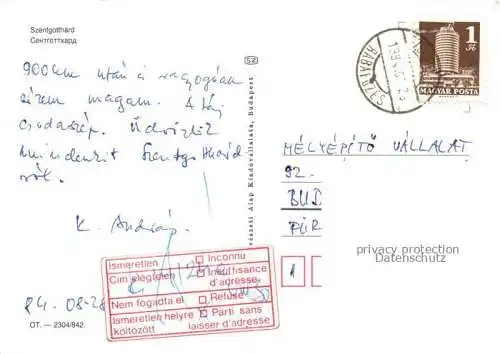 Szentgotthárd
Сентготтхард
900 km után is ragyogóan
érzem magam. A táj
csodaszép. Üdvözlök
mindenkit Szentgotthárd
ról.
K. András
84. 08. 28
OT. — 2304/842.
Alap Kiadóvállalata, Budapest
1 Ft
MAGYAR POSTA
MÉLYÉPÍTŐ VÁLLALAT
92.
BUD
FÜR
1
privacy protection
Datenschutz
Ismeretlen Inconnu
Cím elégtelen Insuffisance
d'adresse
Nem fogadta el Refusé
Ismeretlen helyre Parti sans
költözött laisser d'adresse